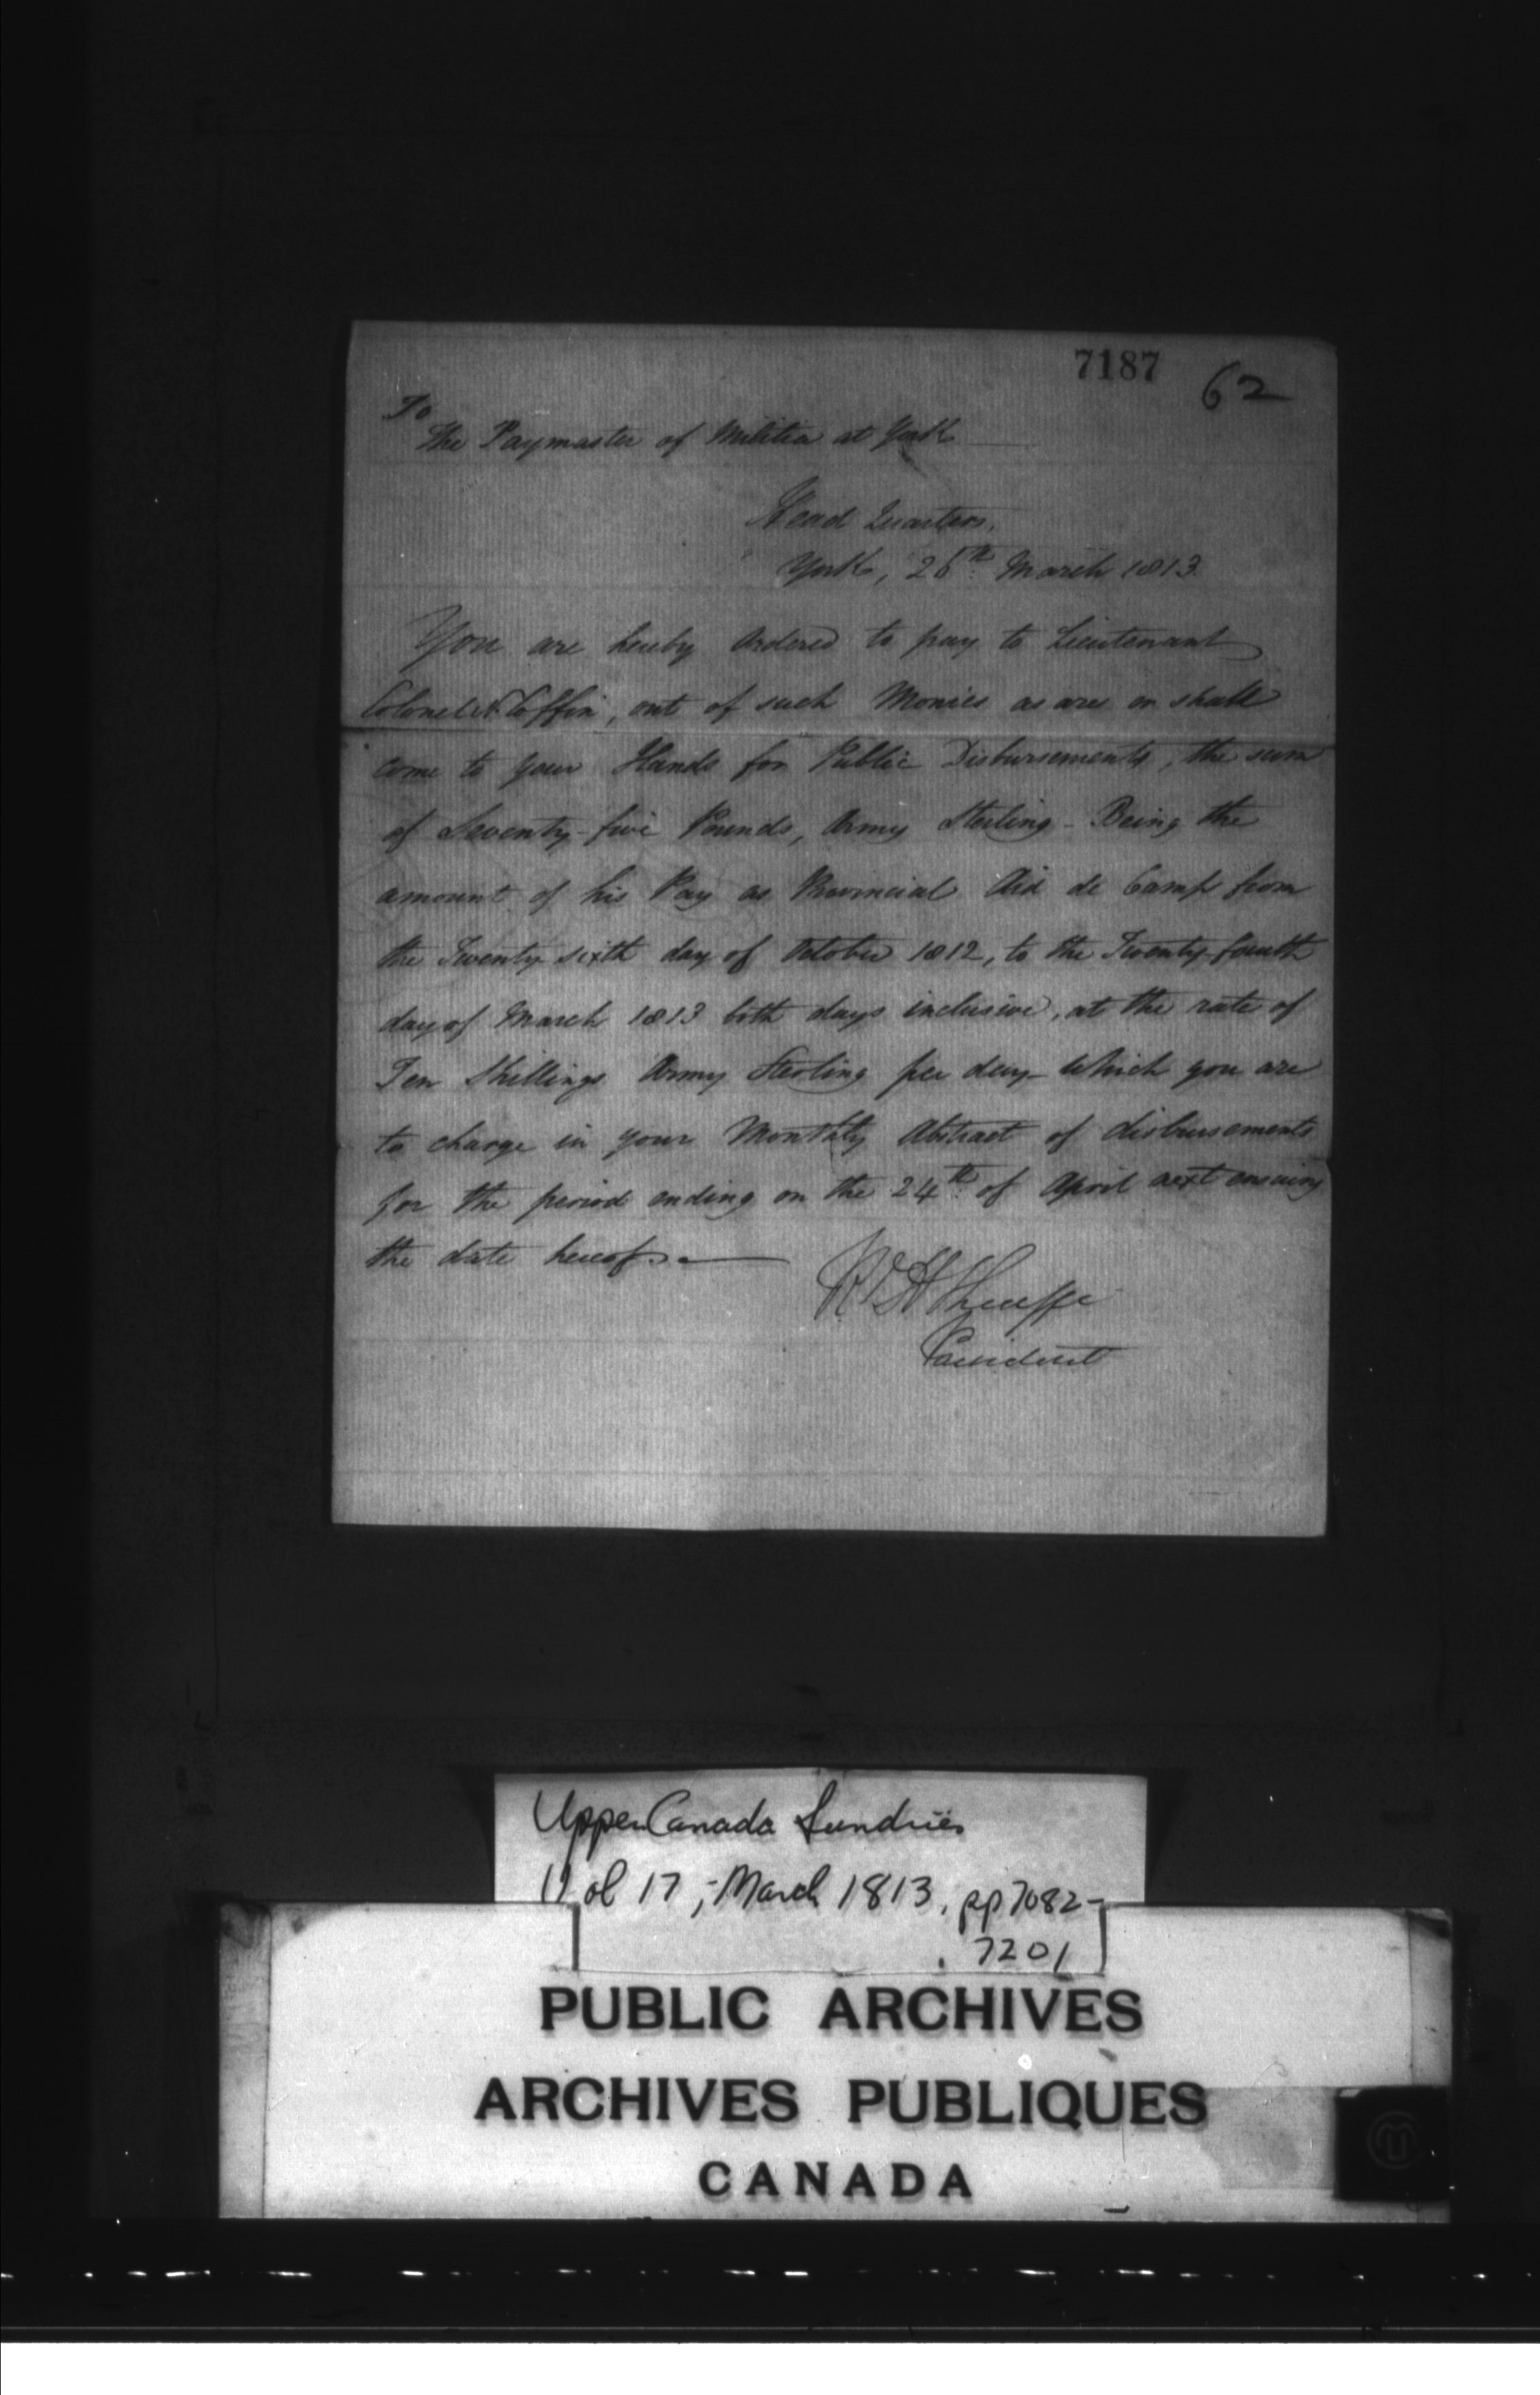 7187
62
To
the Paymaster of Militia at York
Head Quarters,
York, 26th March 1813.
You are hereby Ordered to pay to Lieutenant
Colonel N. Coffin, out of such Monies as are or shall
come to your Hands for Public Disbursements, the sum
of Seventy-five Pounds, Army Sterling - Being the
amount of his Pay as Provincial Aid de Camp from
the Twenty sixth day of October 1812, to the Twenty-fourth
day of March 1813 both days inclusive, at the rate of
Ten Shillings Army Sterling per day - Which you are
to charge in your Monthly Abstract of disbursements
for the period ending on the 24th of April next ensuing
the date hereof. —
R H Sheaffe
President
Upper Canada Sundries
Vol 17, March 1813, pp 7082-
7201
PUBLIC ARCHIVES
ARCHIVES PUBLIQUES
CANADA